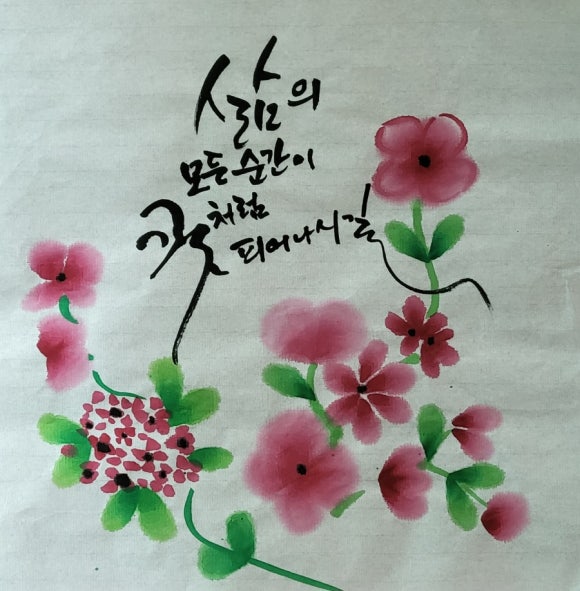 삶의
모든 순간이
꽃처럼
피어나시길